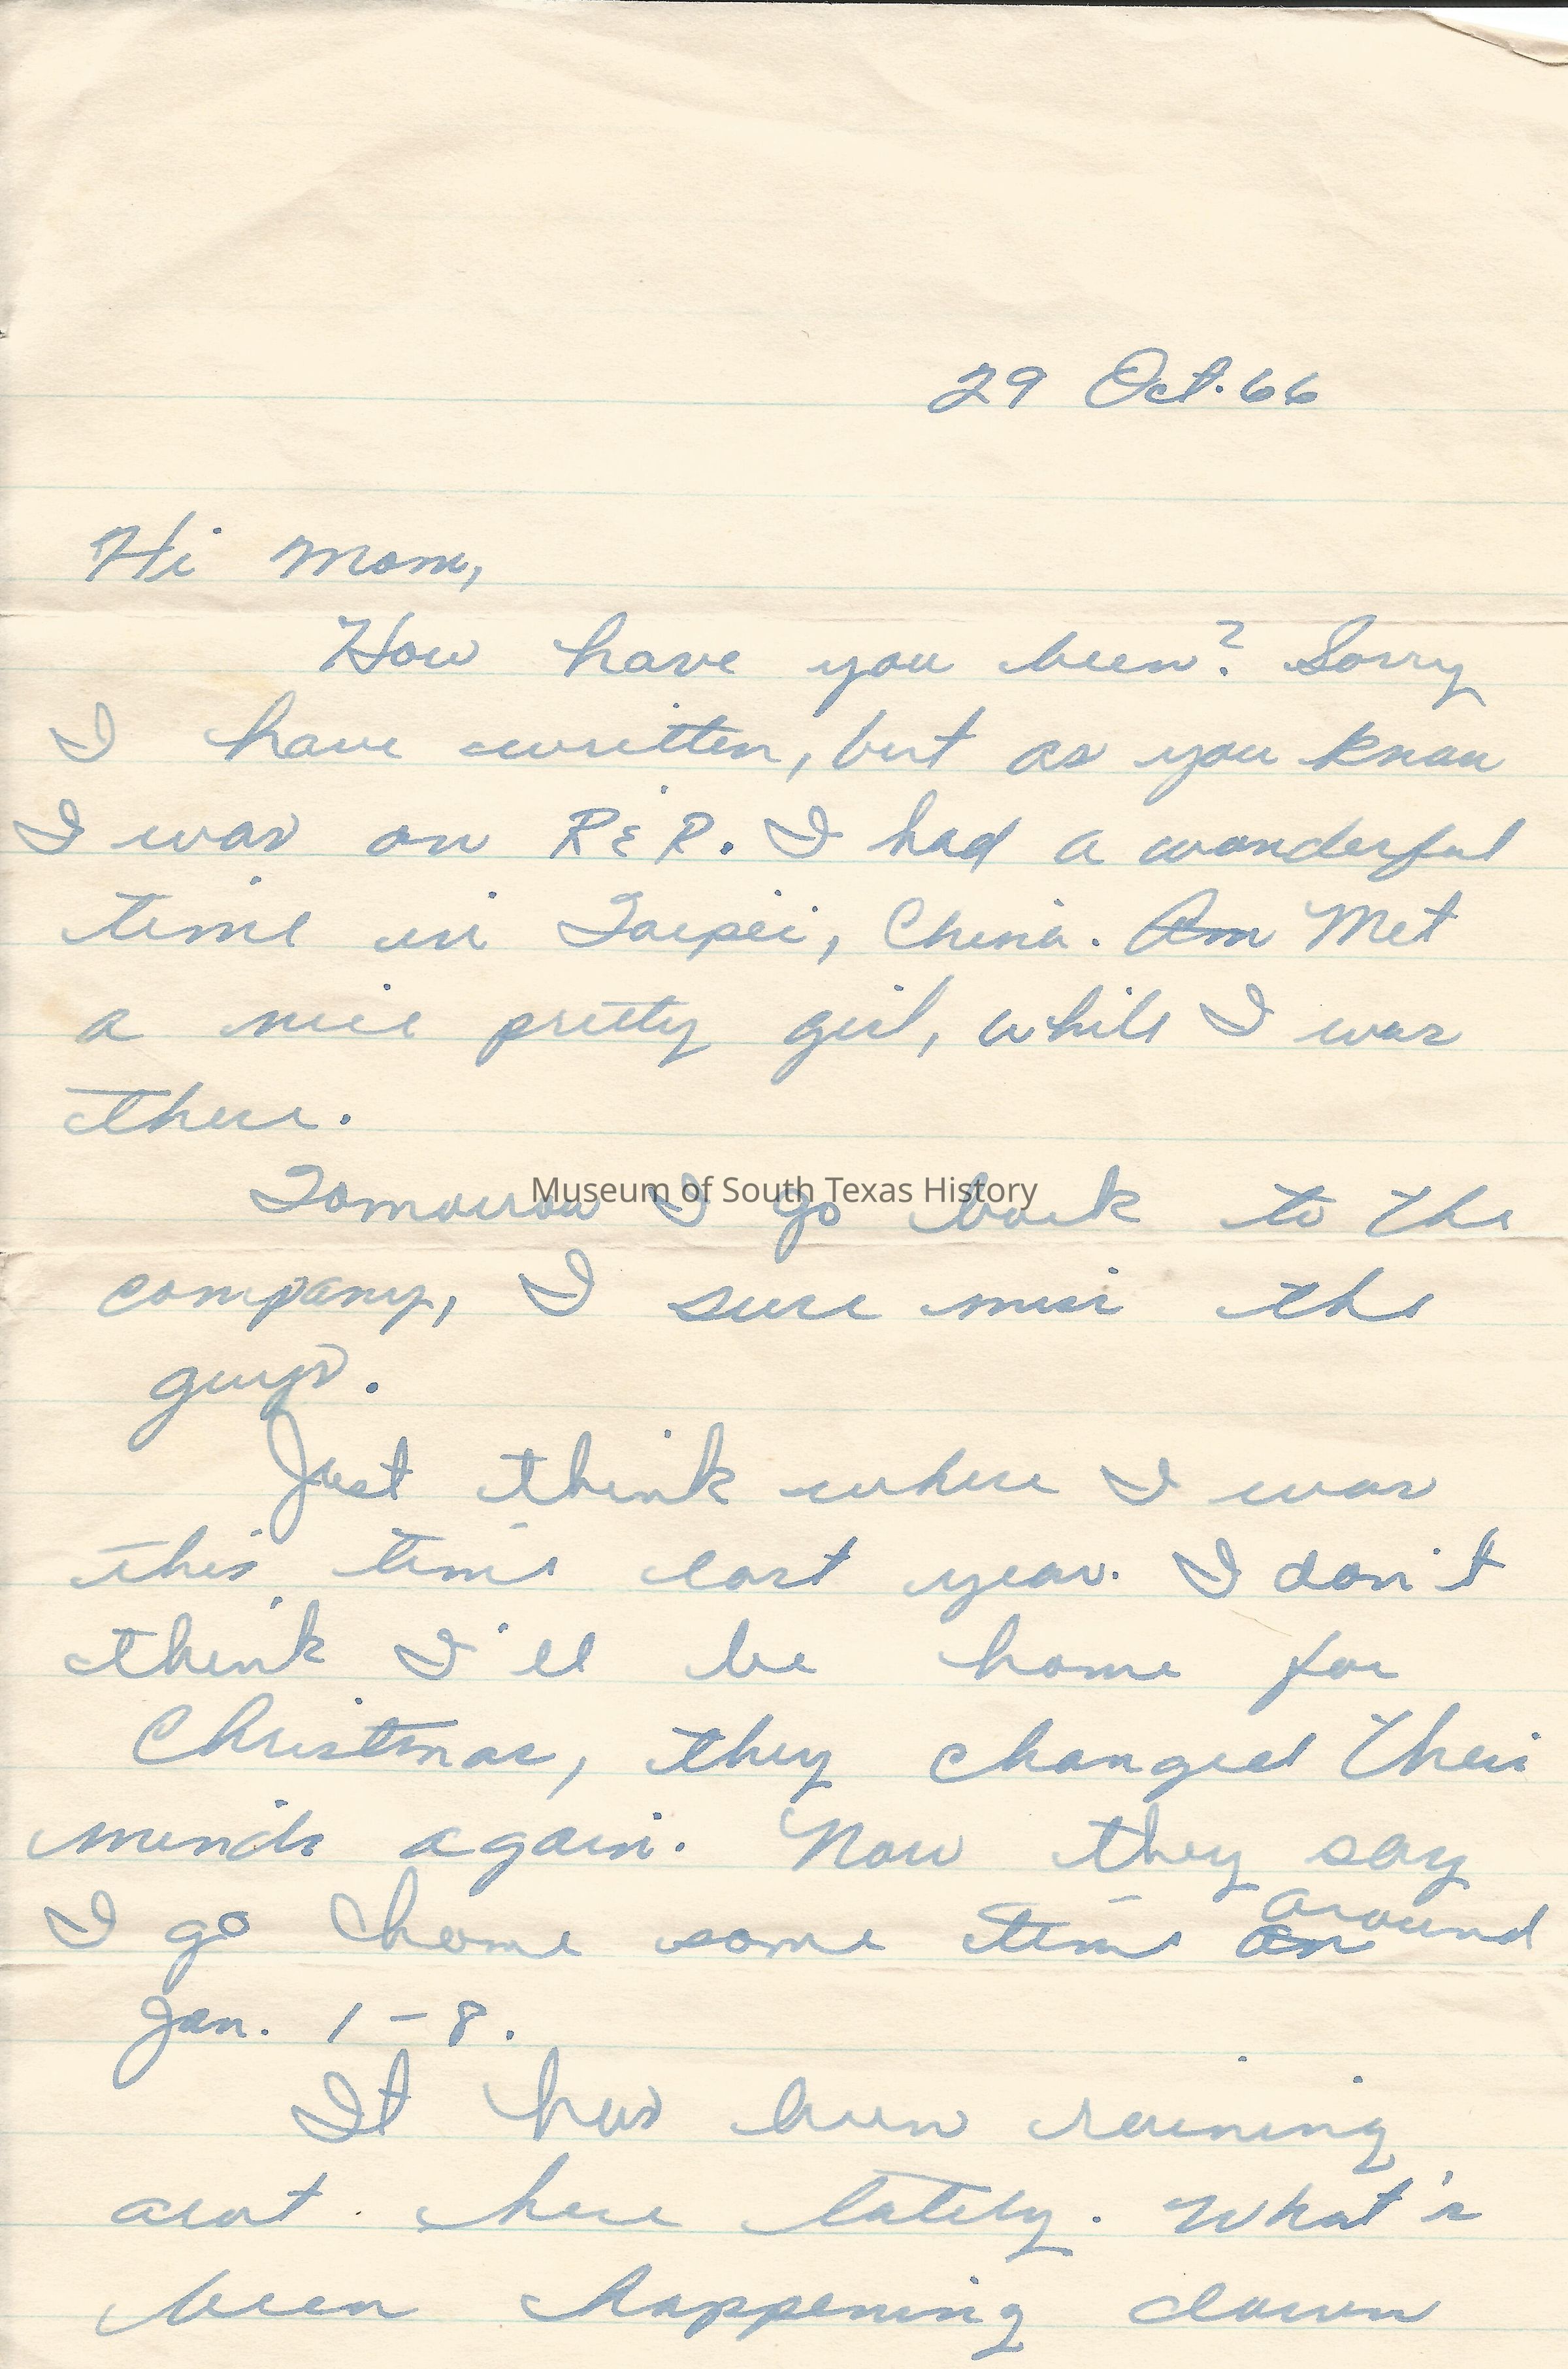 29 Oct. 66
Hi Mom,
How have you been? Sorry
I have written, but as you know
I was on R & R. I had a wonderful
time in Taipei, China. Am Met
a nice pretty girl, while I was
there.
Tomorrow I go back to the
Museum of South Texas History
company, I sure miss the
guys.
Just think where I was
this time last year. I don't
think I'll be home for
Christmas, they changed their
minds again. Now they say
I go home some time on around
Jan. 1 - 8.
It has been raining
out here lately. What's
been happening down